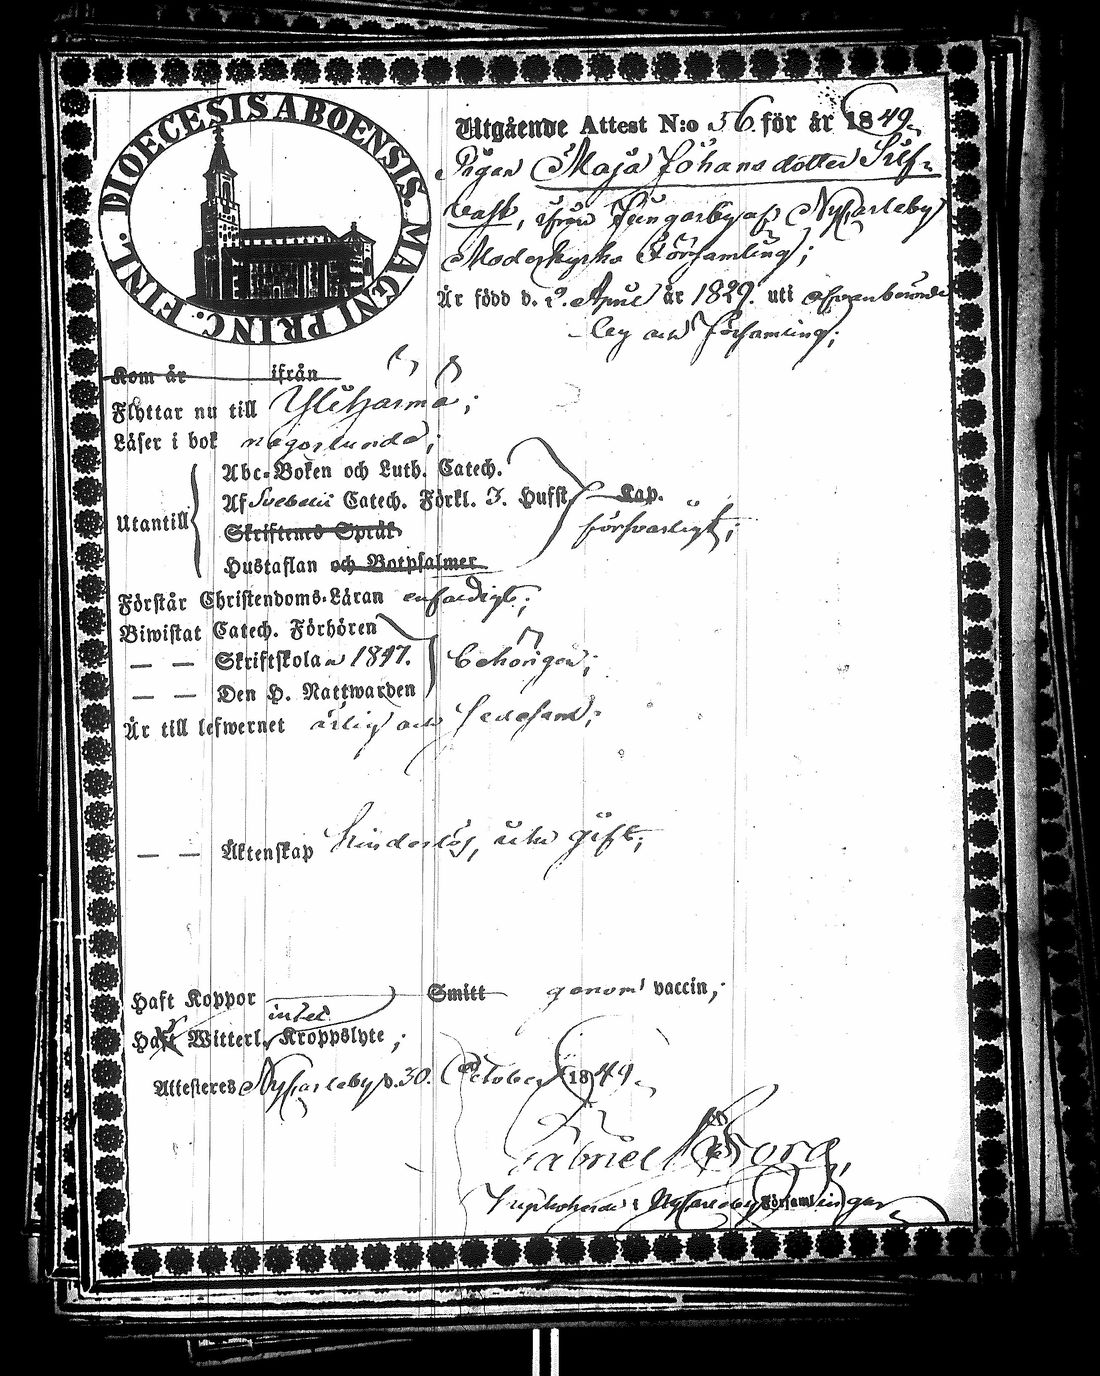 DIOECESIS ABOENSIS. MAGNI PRINC. FINL.
Utgående Attest N:o 56. för år 1849.
Pigan Maja Johansdotter Silf-
vast, ifrån Jungarby af NyCarleby
Moderkyrko Församling;
Är född d. 2. April år 1829. uti ofvanbemälde
by och församling;
Kom år ifrån
Flyttar nu till Ylihärmä;
Läser i bok någorlunda;
Abc-Boken och Luth. Catech.
Utantill Af Svebelii Catech. Förkl. 3. Hufst. Kap.
försvarligt;
Skriftenes Språk
Hustaflan och Botpsalmer
Förstår Christendoms-Läran enfaldigt;
Biwistat Catech. Förhören
— — Skriftskolan 1847. behörigen;
— — Den H. Nattwarden
Är till lefwernet ärlig och sedesam;
— — Äktenskap hinderlös, utan gift;
Haft Koppor Smitt genom vaccin;
intet
Haft Witterl. Kroppslyte;
Attesteres NyCarleby d. 30. October 1849.
Gabriel Borg,
i NyCarleby Församlingar